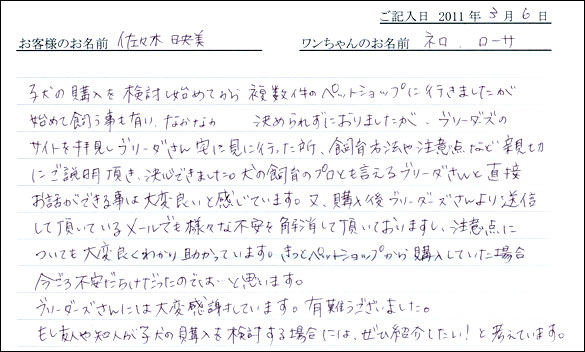 ご記入日 2011年3月6日
お客様のお名前 佐々木 映美 ワンちゃんのお名前 ネロ、ローサ
子犬の購入を検討し始めてから複数件のペットショップに行きましたが
始めて飼う事も有り、なかなか 決められずにおりましたが、ブリーダーズの
サイトを拝見しブリーダーさん宅に見に行った所、飼育方法や注意点など親切
にご説明頂き、決心できました。犬の飼育のプロとも言えるブリーダーさんと直接
お話ができる事は大変良いと感じています。又、購入後ブリーダーズさんより送信
して頂いているメールでも様々な不安を解消して頂いておりますし、注意点に
ついても大変良くわかり助かっています。きっとペットショップから購入していた場合
今ごろ不安だらけだったのでは…と思います。
ブリーダーズさんには大変感謝しています。有難うございました。
もし友人や知人が子犬の購入を検討する場合には、ぜひ紹介したい!と考えています。